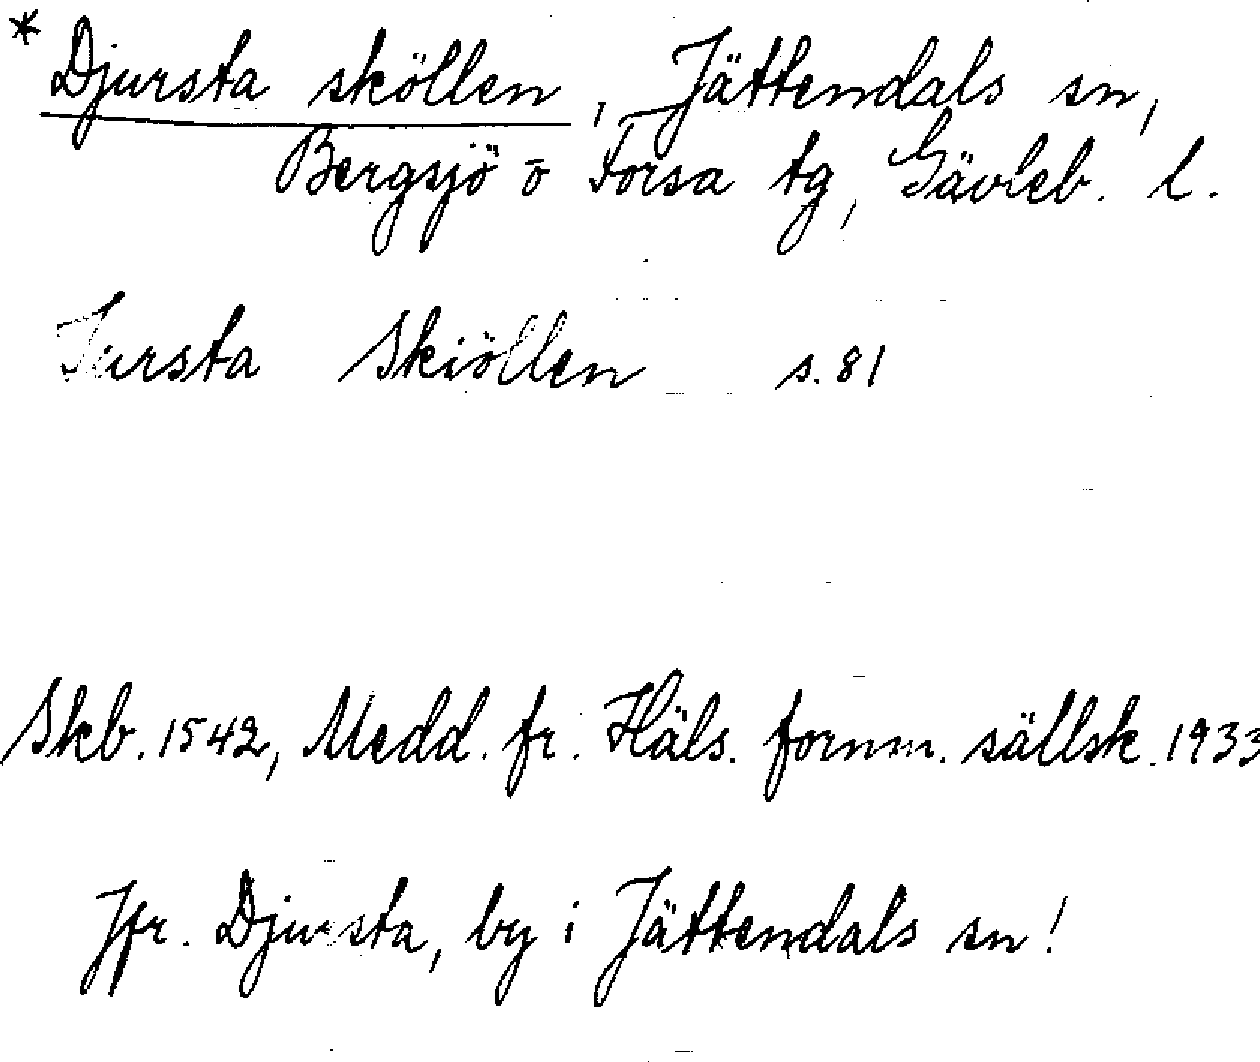 * Djursta sköllen, Jättendals sn,
Bergsjö o Forsa tg, Gävleb. l.
Jursta Skiöllen s. 81
Skb. 1542, Medd. fr. Häls. fornm. sällsk. 1933
Jfr. Djursta, by i Jättendals sn!